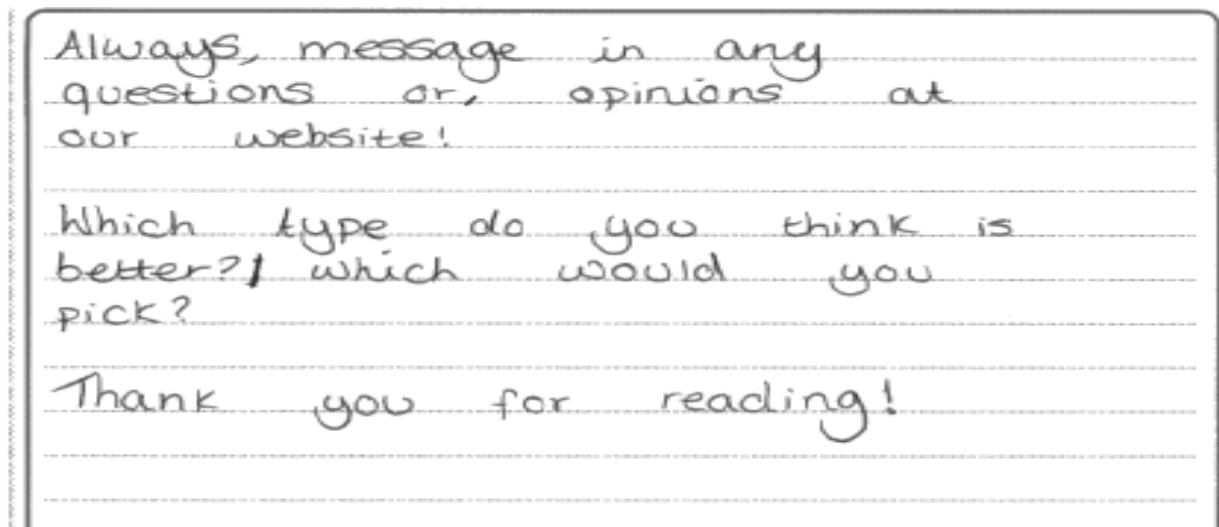 Always, message in any
questions or, opinions at
our website!
Which type do you think is
better?/ which would you
pick?
Thank you for reading!